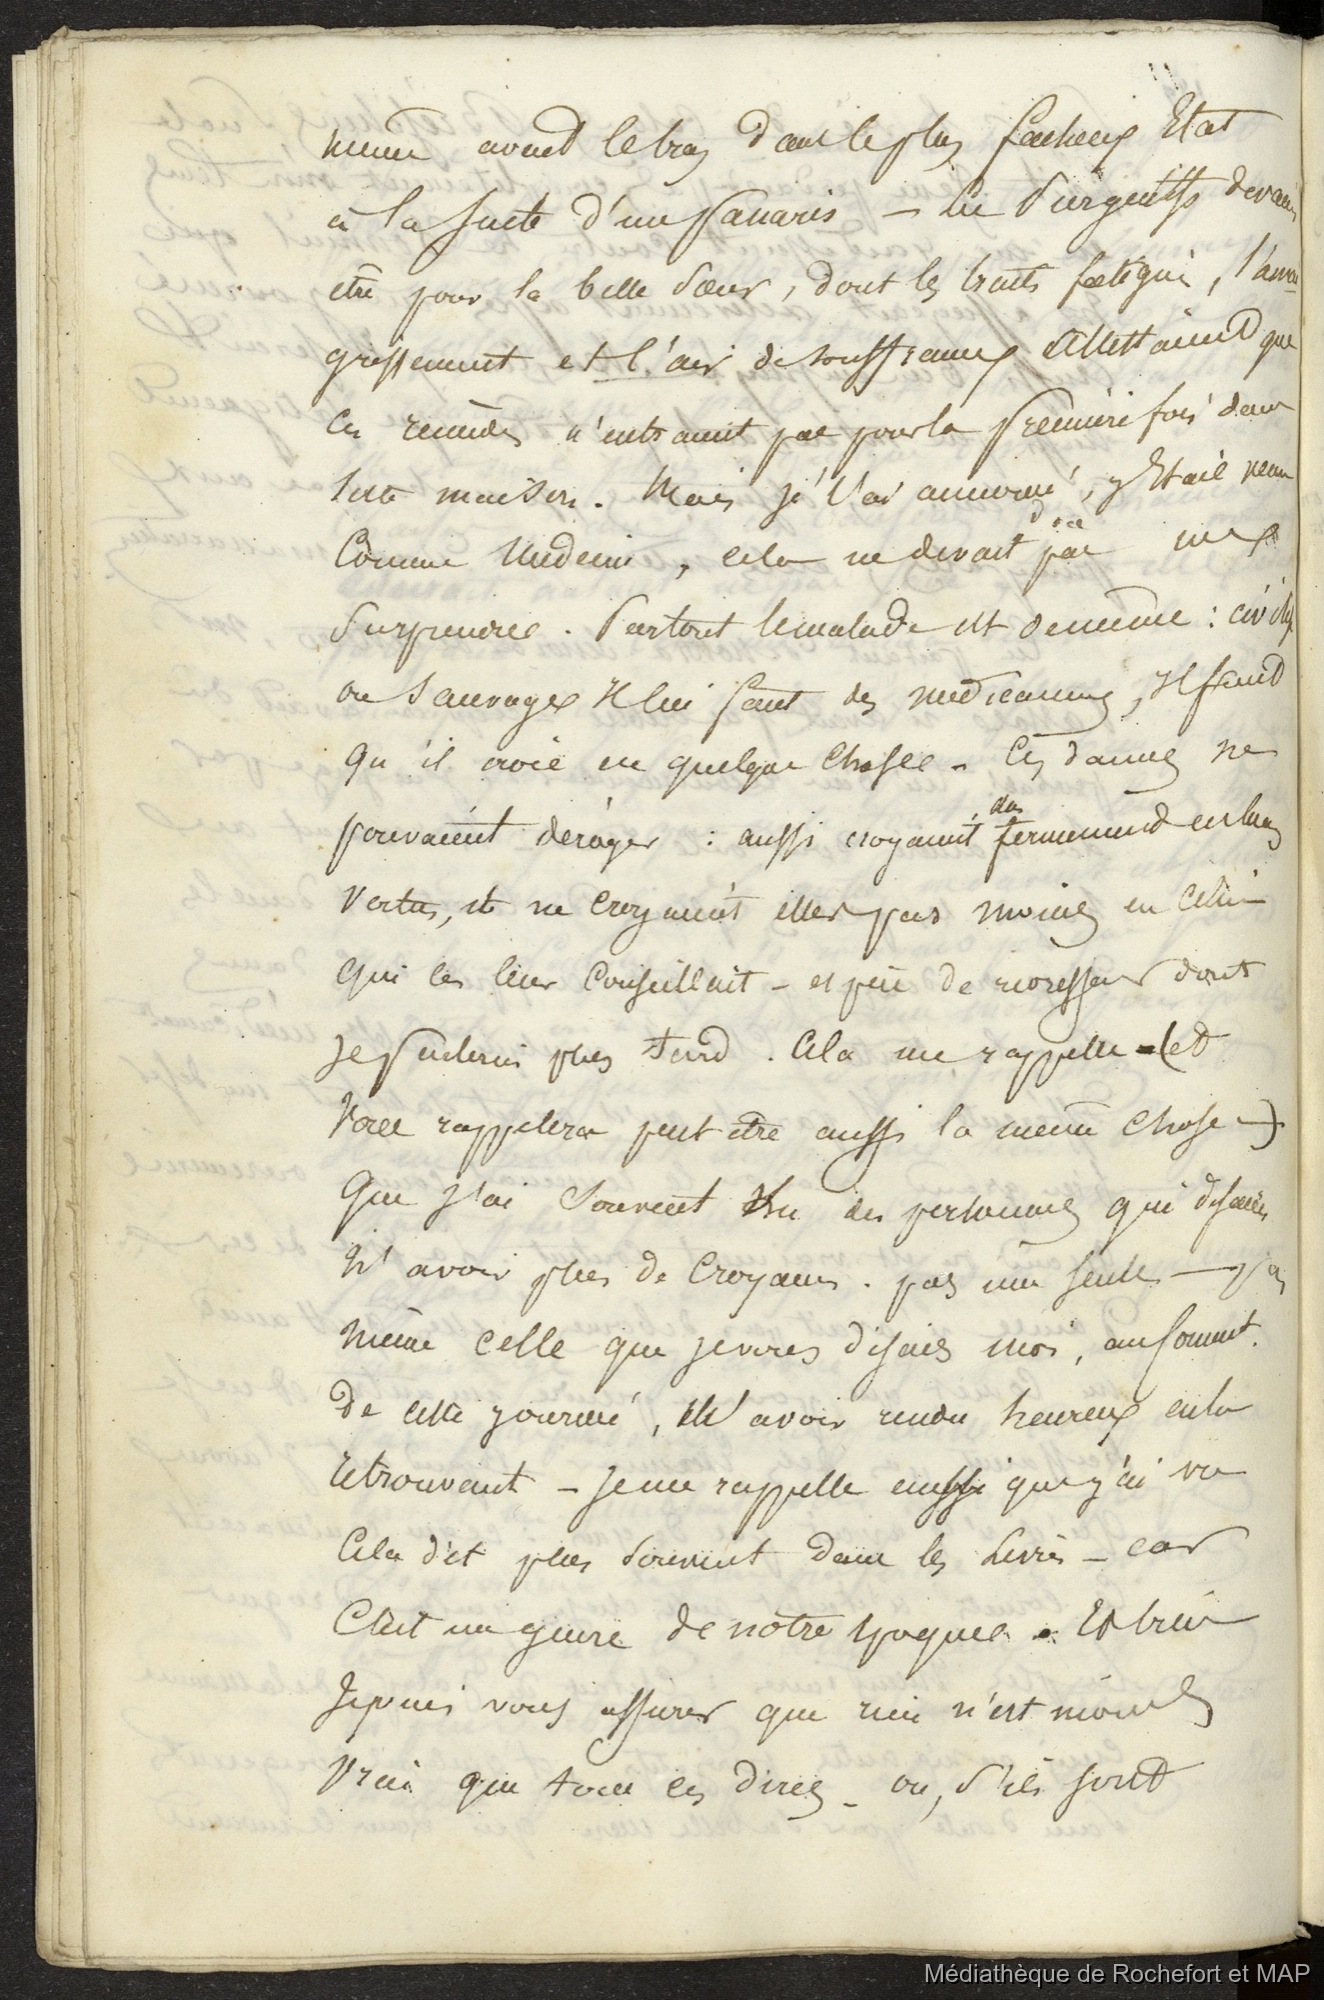 même avait le bras dans le plus facheux Etat
à la suite d'un panaris - Les Purgatifs devaient
être pour la belle Sœur, dont les traits fatigués, l'amai
grissement et l'air de souffrance Attestaient que
Ces remèdes n'entraient pas pour la Premiere fois dans
cette maison. Mais je l'ai annoncé, y Etait venu
Comme Médecin, cela ne devait pas me
Surprendre. Partout le malade est de même : civilisé
ou Sauvage il lui faut des médicaments, il faut
qu'il croie en quelque Chose - Ces dames ne
pouvaient déroger : aussi croyant fermement en leurs
Vertus, et ne Croyaient elles pas moins en Celui
qui les leur Conseillait - espèce de professeur dont
je Parlerai plus tard. Cela me rappelle - (et
Vous rappelera peut être aussi la même Chose -)
que j'ai Souvent vu des personnes qui disaient
N'avoir plus de Croyances. pas une seule - pas
même celle que je vous disais moi, au sommet.
de cette journée, M'avoir rendu heureux en la
retrouvant - Je me rappelle aussi que j'ai vu
Cela dit plus Souvent dans les Livres - car
C'est un genre de notre Epoque. Et bien
Je puis vous assurer que rien n'est moins
Vrai que tous ces dires - ou, s'ils sont
Médiathèque de Rochefort et MAP